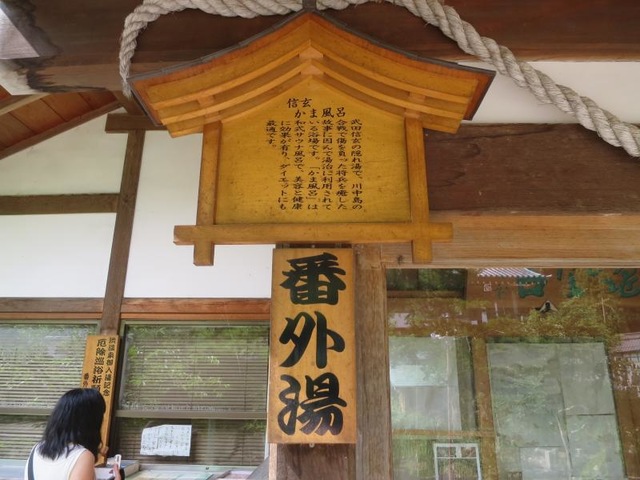 信玄
かま風呂
武田信玄の隠れ湯で、川中島の
合戦で傷を負った将兵を癒した
故事に因んで湯治に利用されて
いる浴場です。「かま風呂」は
和式サウナ風呂で、美容と健康
に効果が有り、ダイエットにも
最適です。
番外湯
厄除巡浴祈願